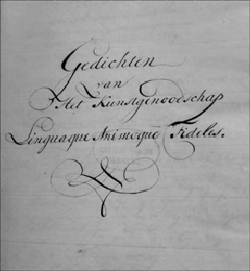 Gedichten
van
Het Kunstgenootschap
Linguaque Animoque Fideles.